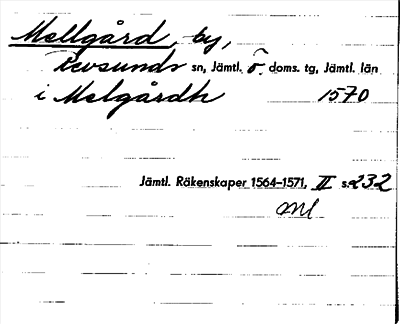 Mellgård, by,
Revsunds sn, Jämtl. ö. doms. tg, Jämtl. län
i Melgårdh 1570
Jämtl. Räkenskaper 1564–1571, II s. 232